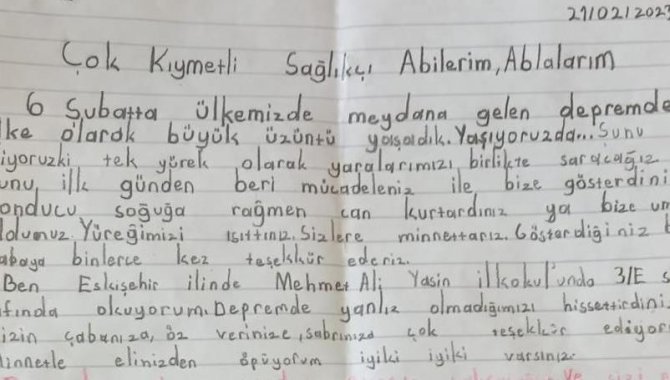 21/02/2023
Çok Kıymetli Sağlıkçı Abilerim, Ablalarım
6 Şubatta ülkemizde meydana gelen depremde
lke olarak büyük üzüntü yaşadık. Yaşıyoruzda... Şunu
iyoruzki tek yürek olarak yaralarımızı birlikte saracağız
unu, ilk günden beri mücadeleniz ile bize gösterdini
onducu soğuğa rağmen can kurtardınız ya bize um
ldunuz. Yüreğimizi ısıttınız. Sizlere minnettarız. Gösterdiğiniz
abaya binlerce kez teşekkür ederiz.
Ben Eskişehir ilinde Mehmet Ali Yasin ilkokul'unda 3/E s
fında okuyorum. Depremde yanlız olmadığımızı hissettirdini
izin çabanıza, öz verinize, sabrınıza çok teşekkür ediyor
innetle elinizden öpüyorum iyiki iyiki varsınız.